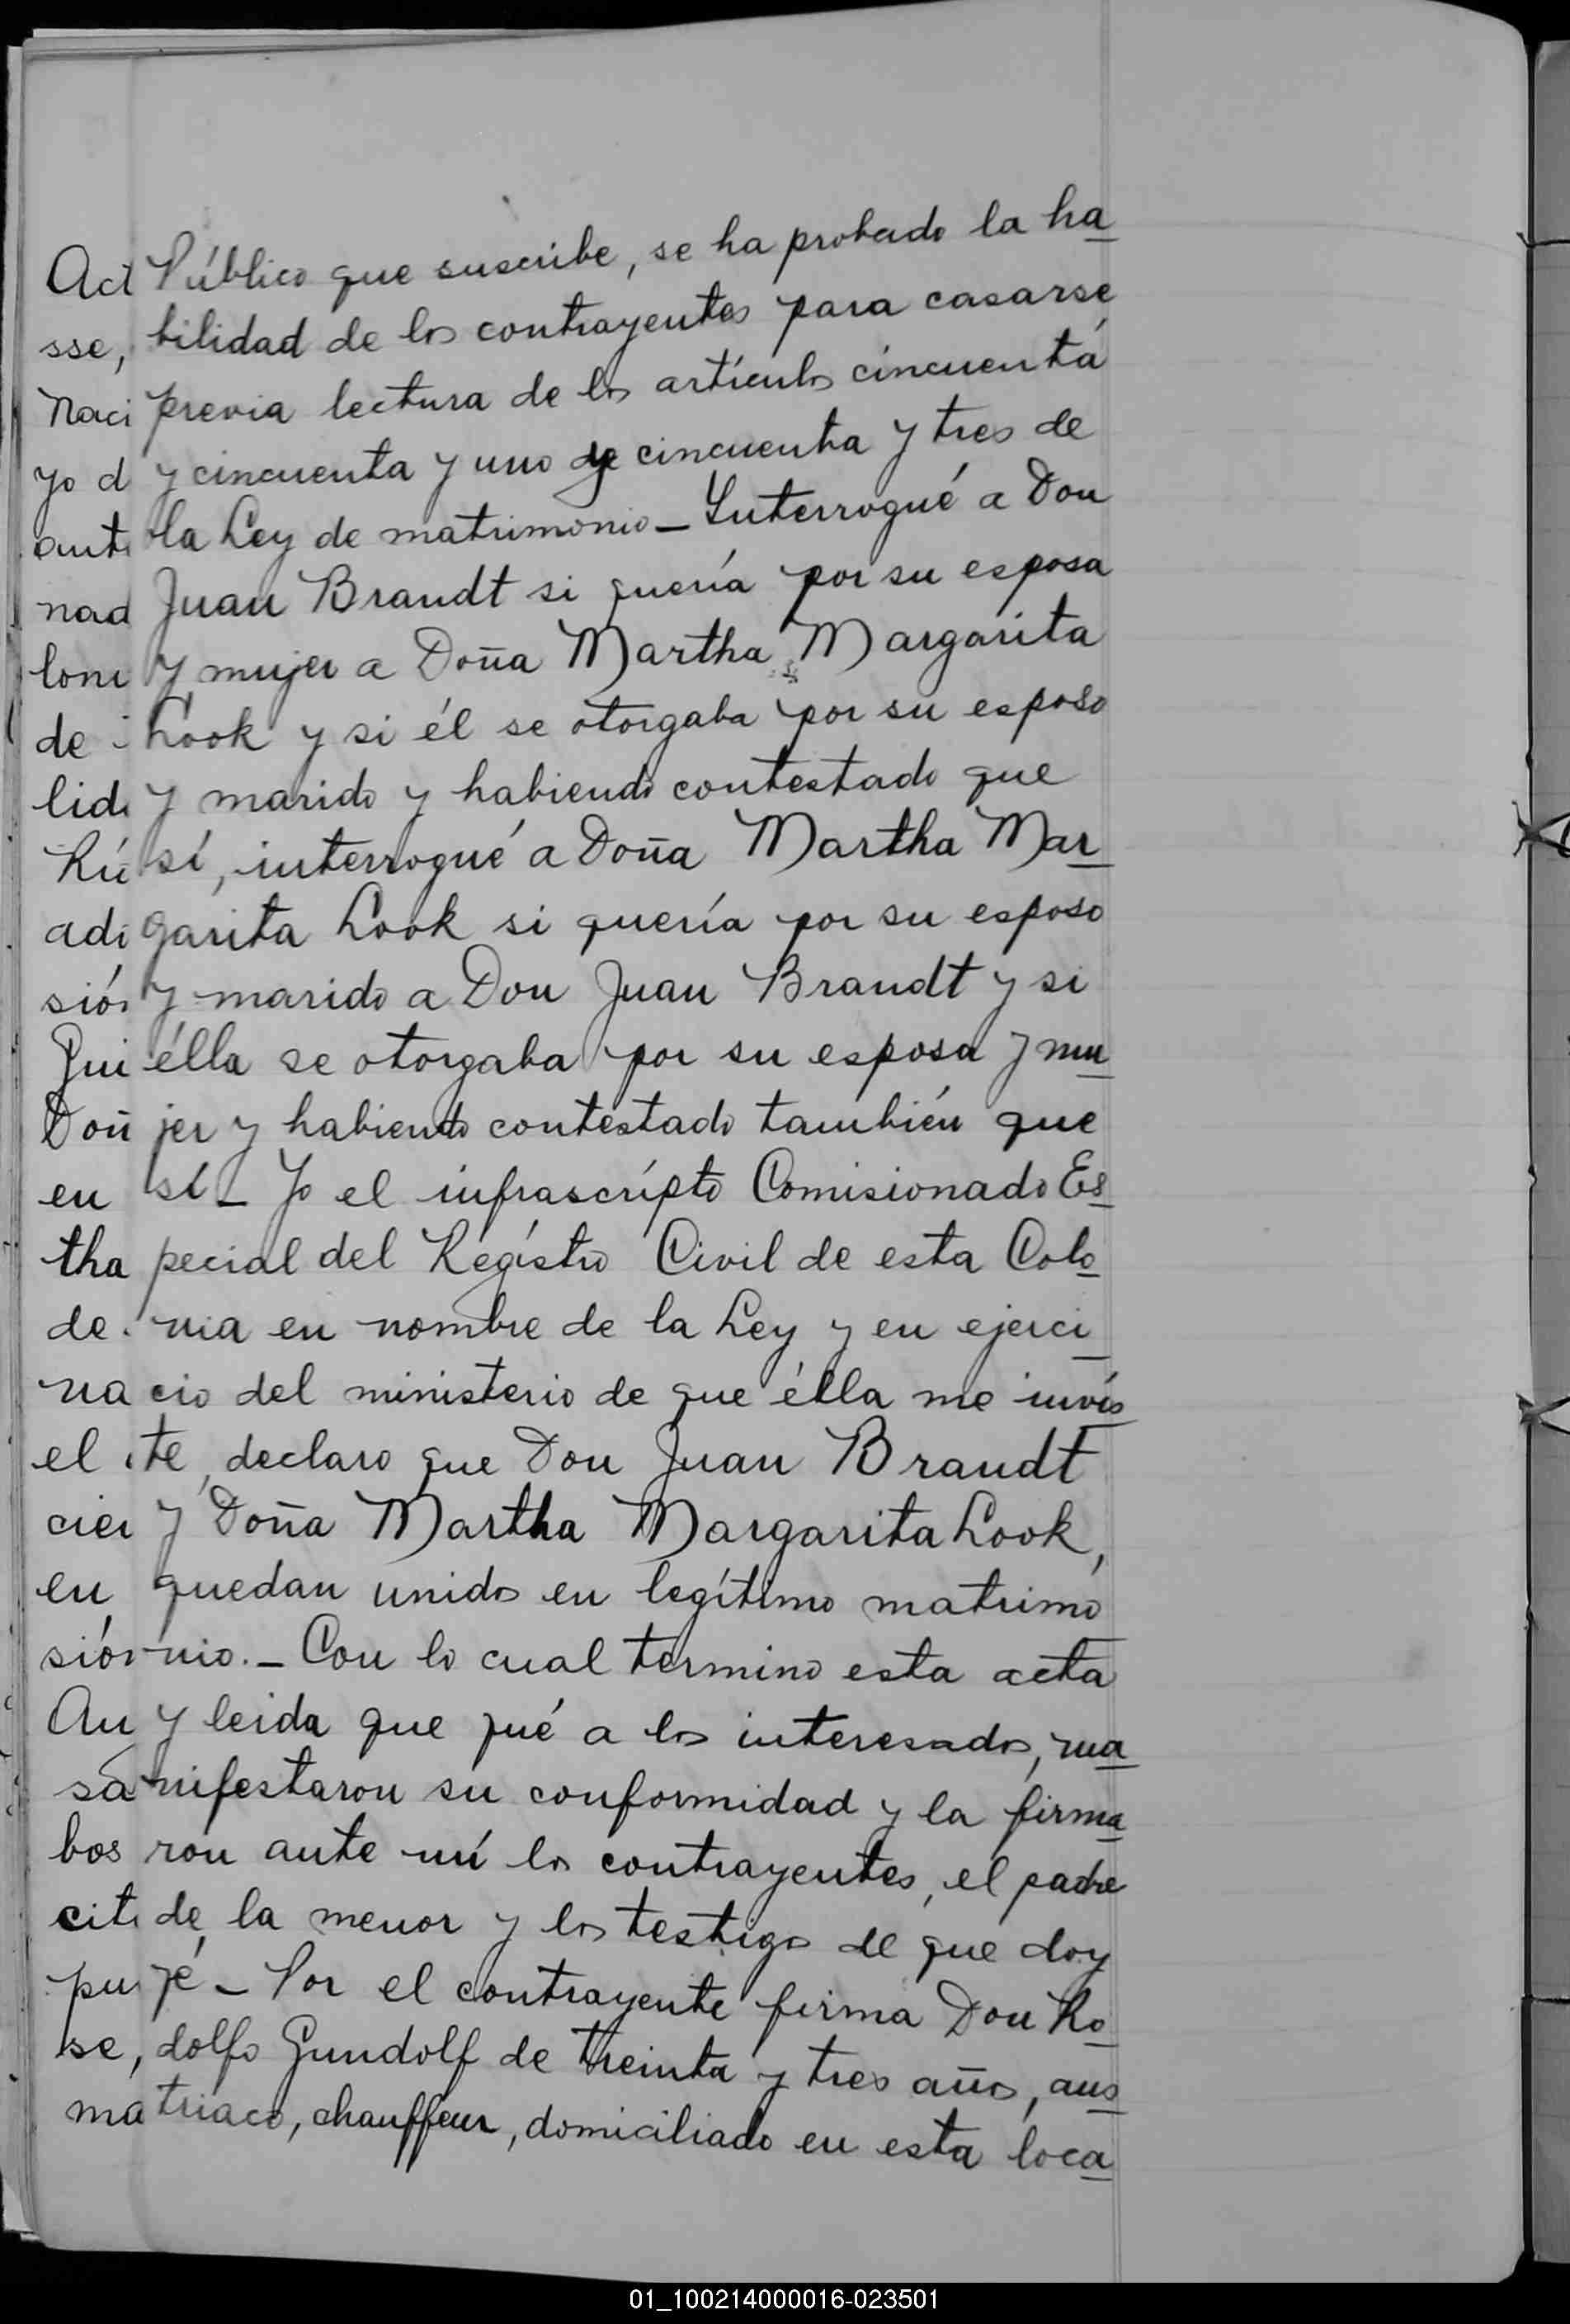 Act Público que suscribe, se ha probado la ha
sse, bilidad de los contrayentes para casarse
Naci previa lectura de los artículos cincuenta
yo d y cincuenta y uno y cincuenta y tres de
ante la Ley de matrimonio_ Interrogué a Don
nad Juan Brandt si quería por su esposa
loni y mujer a Doña Martha Margarita
de Look y si él se otorgaba por su esposo
lida y marido y habiendo contestado que
Rú sí, interrogué a Doña Martha Mar
adi garita Look si quería por su esposo
sión y marido a Don Juan Brandt y si
Qui élla se otorgaba por su esposa y mu
Doñ jer y habiendo contestado también que
en sí_ Yo el infrascrípto Comisionado Es
tha pecial del Regístro Civil de esta Colo
de nia en nombre de la Ley y en ejerci
na cio del ministerio de que élla me invís
el te, declaro que Don Juan Brandt
cier y Doña Martha Margarita Look,
en quedan unidos en legítimo matrimo
sión nio._ Con lo cual termino esta acta
An y leida que fué a los interesados, ma
sa nifestaron su conformidad y la firma
bos ron ante mí los contrayentes, el padre
cit de la menor y los testigos de que doy
pu fé_ Por el contrayente firma Don Ro
se, dolfo Gundolf de treinta y tres años, aus
ma triaco, chauffeur, domiciliado en esta loca
01_100214000016-023501